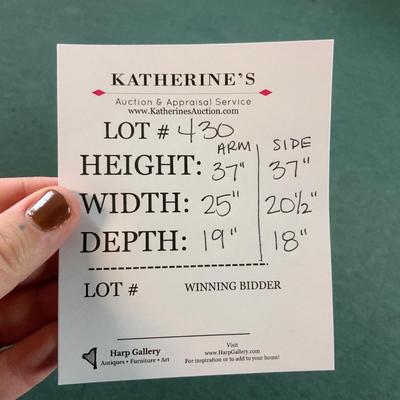 KATHERINE'S
Auction & Appraisal Service
www.KatherinesAuction.com
LOT # 430
ARM SIDE
HEIGHT: 37" 37"
WIDTH: 25" 20½"
DEPTH: 19" 18"
LOT # WINNING BIDDER
Harp Gallery
Antiques • Furniture • Art
Visit
www.HarpGallery.com
For inspiration or to add to your home!